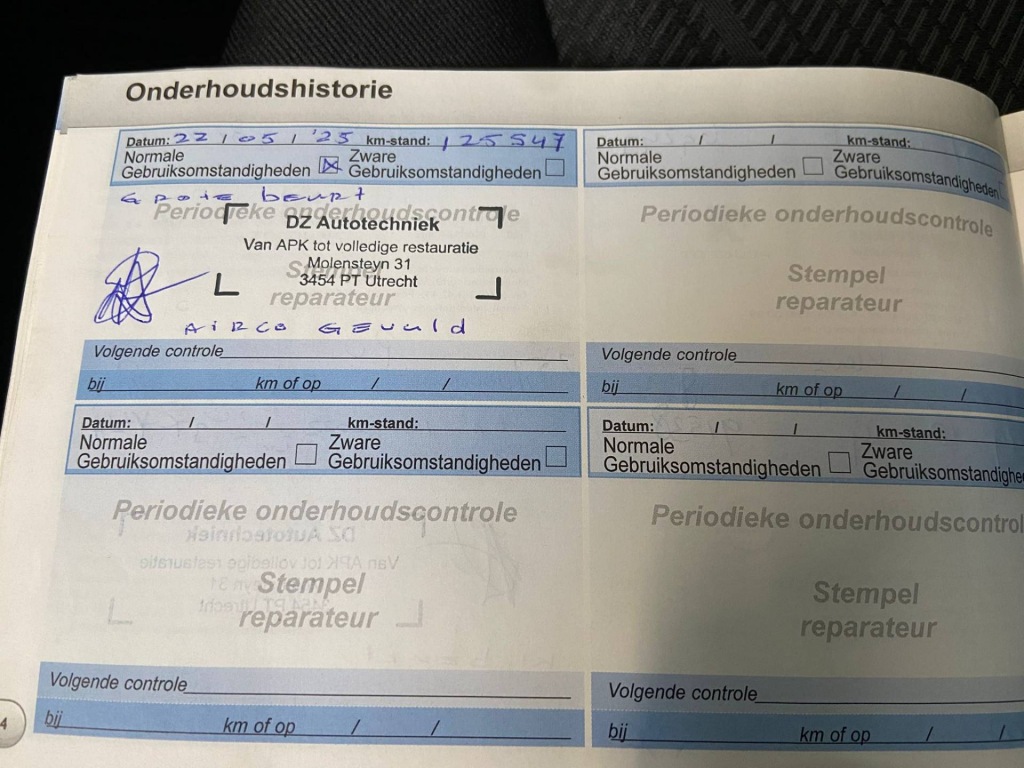 Onderhoudshistorie
Datum: 22 / 05 / '25 km-stand: 125547
Normale Gebruiksomstandigheden ☒ Zware Gebruiksomstandigheden ☐
Grote beurt
Periodieke onderhoudscontrole
DZ Autotechniek
Van APK tot volledige restauratie
Molensteyn 31
Stempel
3454 PT Utrecht
reparateur
AIRCO GEVULD
Volgende controle
bij km of op / /
Datum: / / km-stand:
Normale Gebruiksomstandigheden ☐ Zware Gebruiksomstandigheden
Periodieke onderhoudscontrole
Stempel
reparateur
Volgende controle
bij km of op / /
Datum: / / km-stand:
Normale Gebruiksomstandigheden ☐ Zware Gebruiksomstandigheden ☐
Periodieke onderhoudscontrole
DZ Autotechniek
Van APK tot volledige restauratie
Stempel
reparateur
Volgende controle
bij km of op / /
Datum: / / km-stand:
Normale Gebruiksomstandigheden ☐ Zware Gebruiksomstandighe
Periodieke onderhoudscontrol
Stempel
reparateur
Volgende controle
bij km of op / /
4